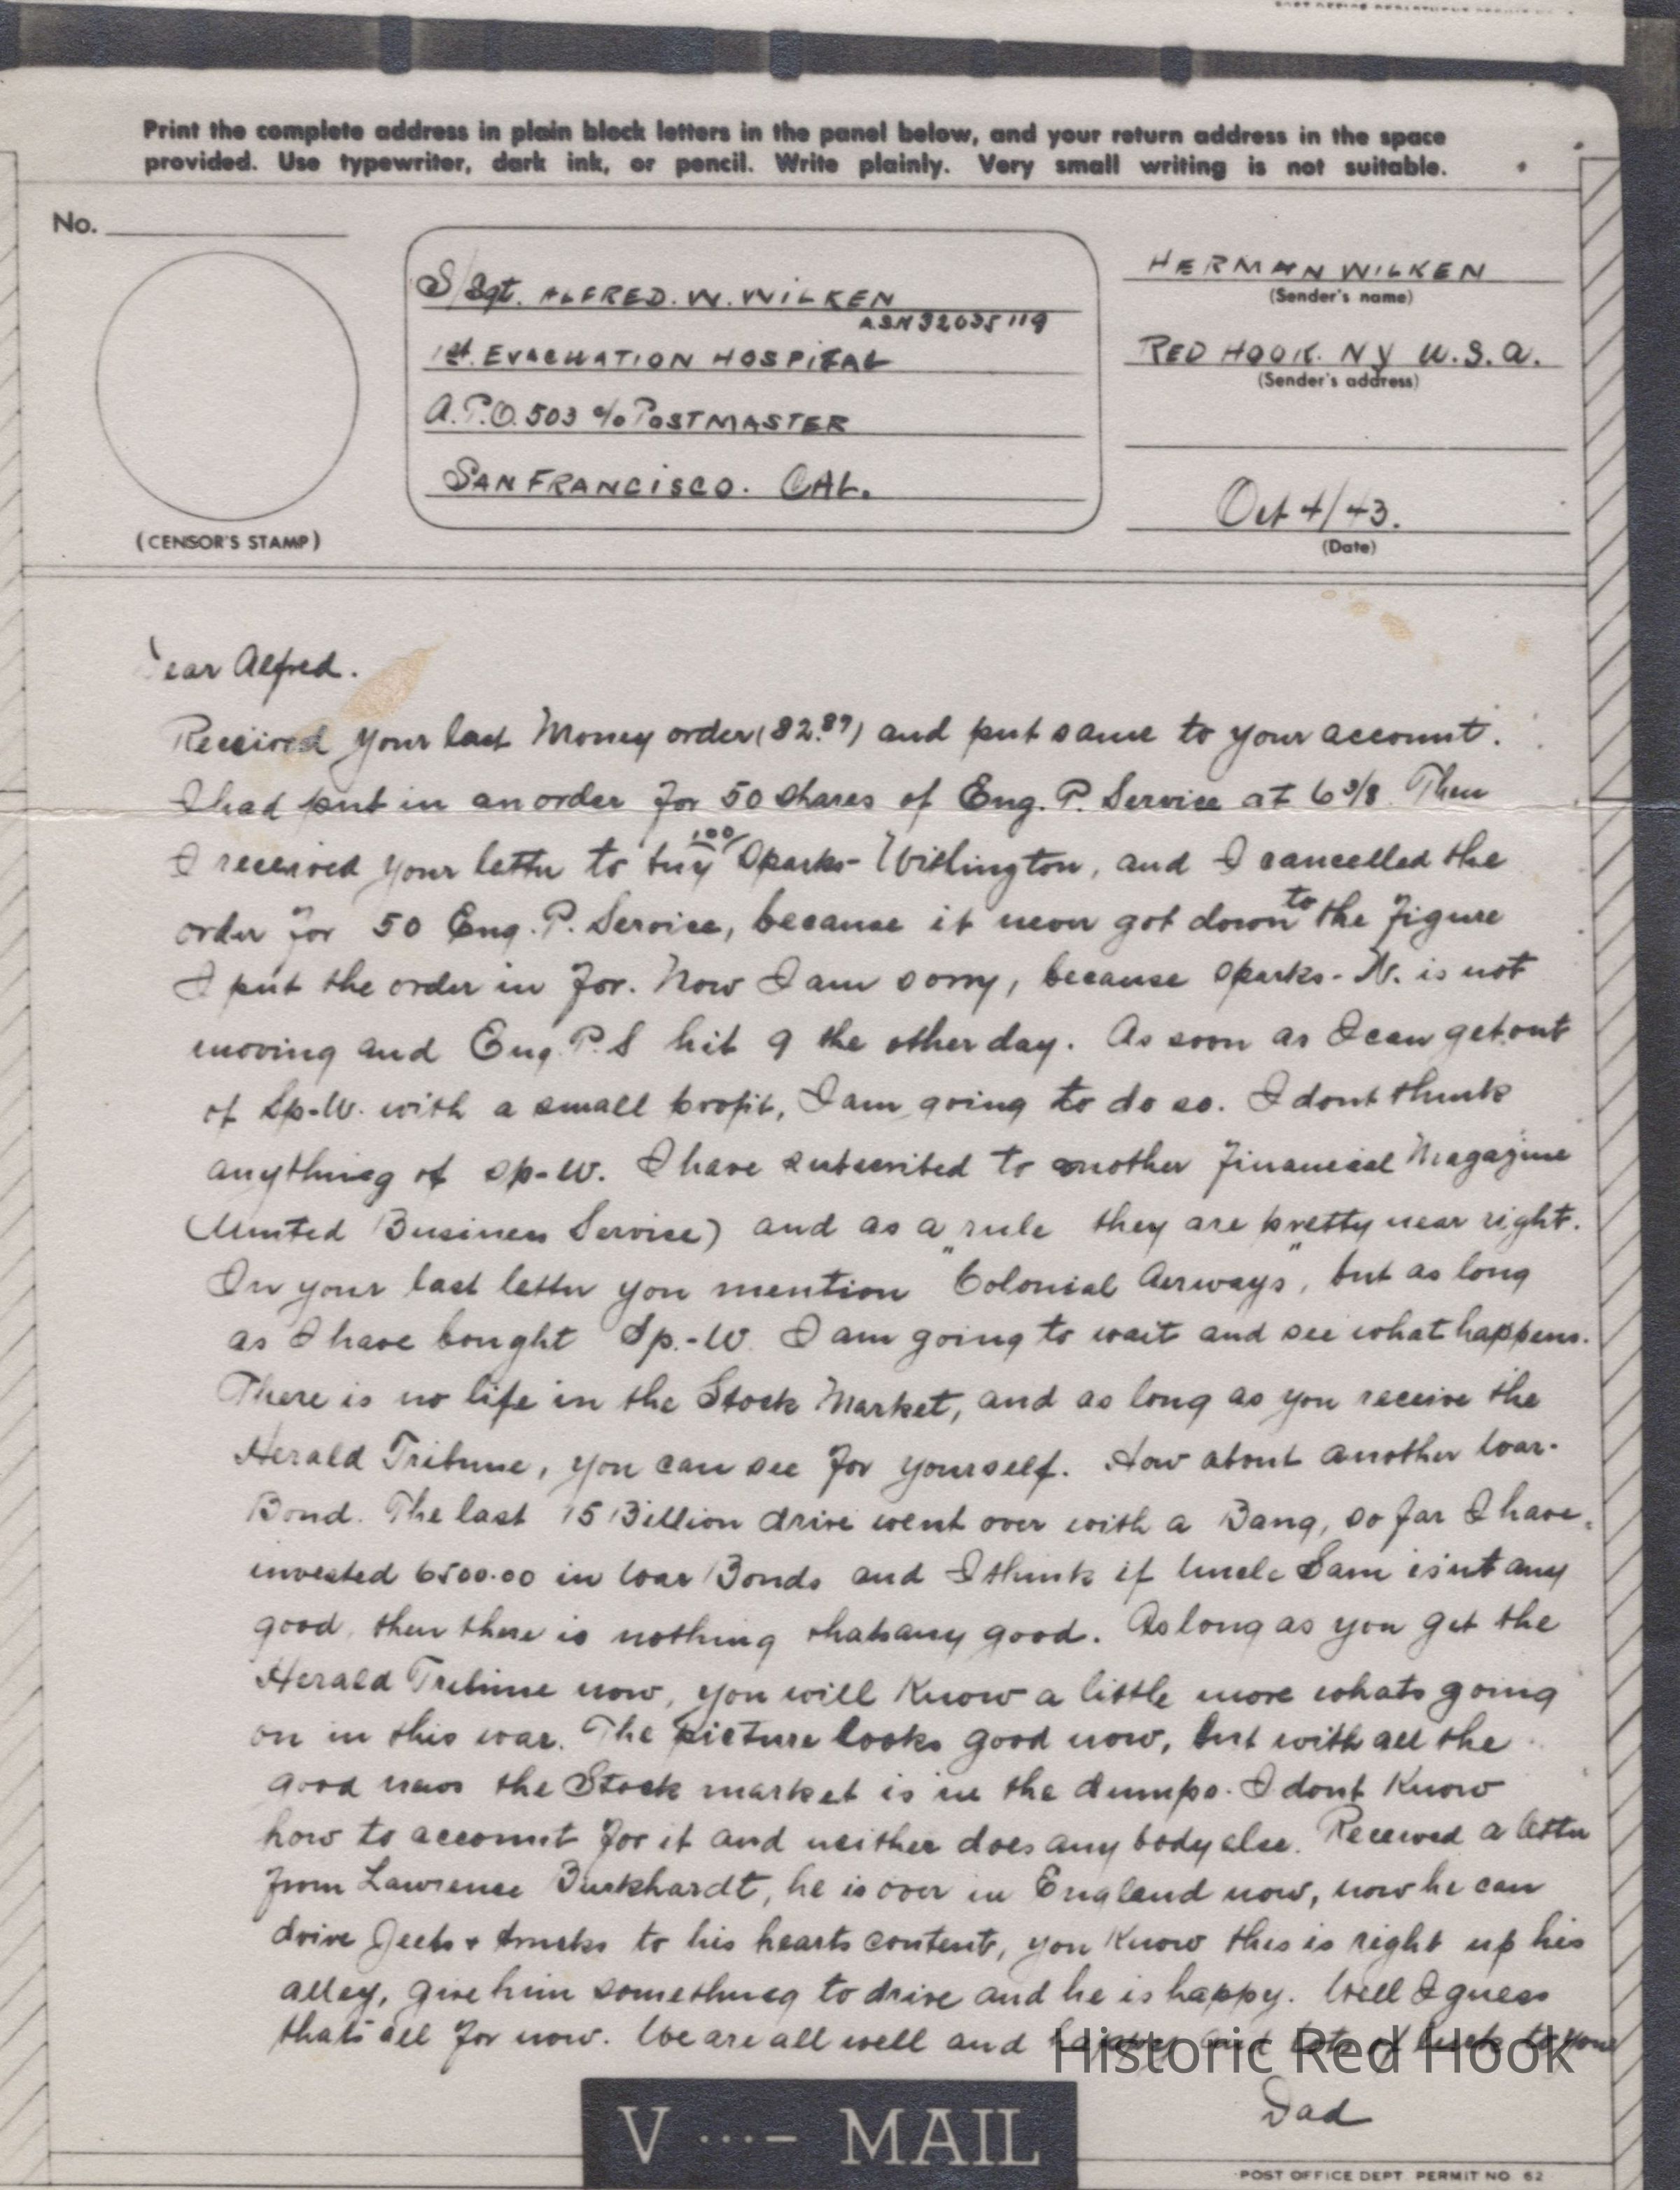 Print the complete address in plain block letters in the panel below, and your return address in the space
provided. Use typewriter, dark ink, or pencil. Write plainly. Very small writing is not suitable.
No.
(CENSOR'S STAMP)
S/Sgt. ALFRED. W. WILKEN
ASN 32035119
1st. EVACUATION HOSPITAL
A.P.O. 503 c/o POSTMASTER
SAN FRANCISCO. CAL.
HERMAN WILKEN
(Sender's name)
RED HOOK. NY U.S.A.
(Sender's address)
Oct 4/43.
(Date)
ear Alfred.
Received your last Money order (82.87) and put same to your account.
I had put in an order for 50 shares of Eng. P. Service at 6 3/8. Then
I received your letter to buy 100 Sparks-Withington, and I cancelled the
order for 50 Eng. P. Service, because it never got down to the figure
I put the order in for. Now I am sorry, because Sparks-W. is not
moving and Eng. P. S hit 9 the other day. As soon as I can get out
of Sp-W. with a small profit, I am going to do so. I dont think
anything of Sp-W. I have subscribed to another financial Magazine
(United Business Service) and as a rule they are pretty near right.
In your last letter you mention "Colonial Airways", but as long
as I have bought Sp.-W. I am going to wait and see what happens.
There is no life in the Stock Market, and as long as you receive the
Herald Tribune, you can see for yourself. How about another War-
Bond. The last 15 Billion drive went over with a Bang, so far I have
invested 6500.00 in War Bonds and I think if Uncle Sam isn't any
good, then there is nothing thats any good. As long as you get the
Herald Tribune now, you will Know a little more whats going
on in this war. The picture looks good now, but with all the
good news the Stock market is in the dumps. I dont Know
how to account for it and neither does any body else. Received a letter
from Lawrence Burkhardt, he is over in England now, now he can
drive Jeebs & trucks to his hearts content, you Know this is right up his
alley, give him something to drive and he is happy. Well I guess
thats all for now. We are all well and happy and lots of luck to you
Dad
Historic Red Hook
V ...- MAIL
POST OFFICE DEPT. PERMIT NO. 62